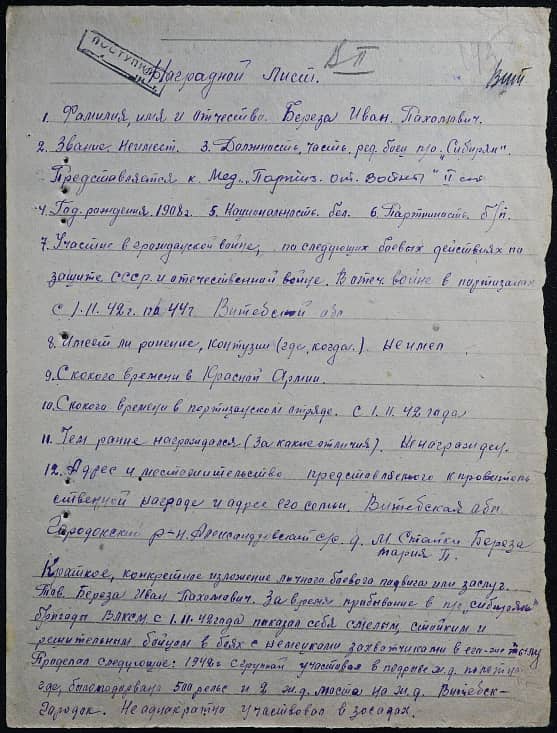 ПОСТУПИЛ
Наградной лист.
Вит
1. Фамилия, имя и отчество. Береза Иван Пахомович.
2. Звание. Неимеет. 3. Должность, часть, ред. боец п/о „Сибиряк".
Представляется к. Мед. „Партиз. от. войны" II ст
4. Год. рождения. 1908 г. 5. Национальность. бел. 6. Партийность. б/п.
7. Участие в гражданской войне, последующих боевых действиях по
защите СССР. и отечественной войне. В отеч. войне в партизанах
с 1.11.42 г. по 44 г. Витебской обл
8. Имеет ли ранение, контузии (где, когда.). Неимел
9. С какого времени в Красной Армии.
10. С какого времени в партизанском отряде. с 1.11.42 года
11. Чем ранне награждался (за какие отличия). Ненагражден.
12. Адрес и местожительство представляемого к правитель
ственной награде и адрес его семьи. Витебская обл.
Городокский р-н. Александровский с/с. д. М Стайки Береза
Мария П.
Краткое, конкретное изложение личного боевого подвига или заслуг.
Тов. Береза Иван Пахомович. За время прибывание в п/о „Сибиряк"
бригады ВЛКСМ с 1.11.42 года показал себя смелым, стойким и
решительным бойцом в боях с немецкими захватчиками в тылу
Проделал следующие: 1942 г. с группой участвовал в подрыве ж.д. полотна
где, было подорвано 500 рельс и 2 ж.д. моста на ж.д. Витебск-
Городок. Неаднакратно участвовал в засадах.